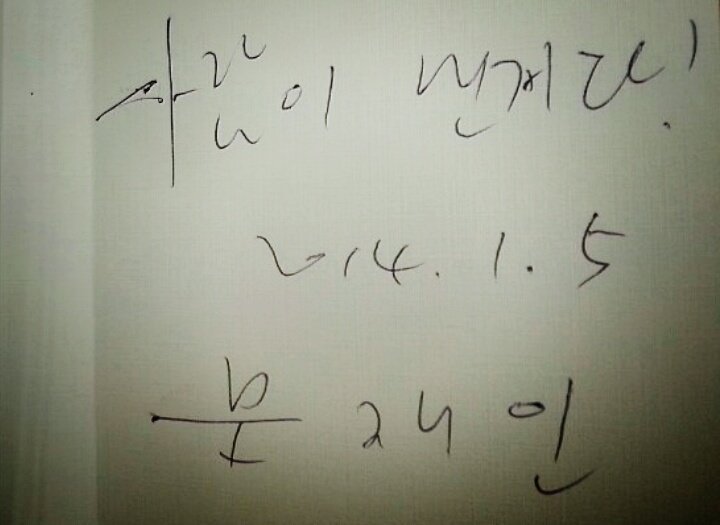 사람이 먼저다!
2014. 1. 5
문재인